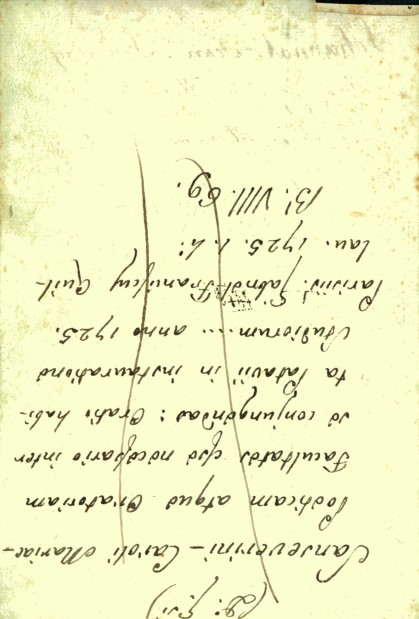 Sanseverini - Caroli Mariae -
Poeticam atque Oratoriam
Facultates esse necessario inter
se conjungendas: Oratio habi-
ta Patavii in instauratione
Studiorum ... anno 1725.
Parisiis. Franciscus Guil-
lau. 1725. 1. 4:
B'. VIII. 69.